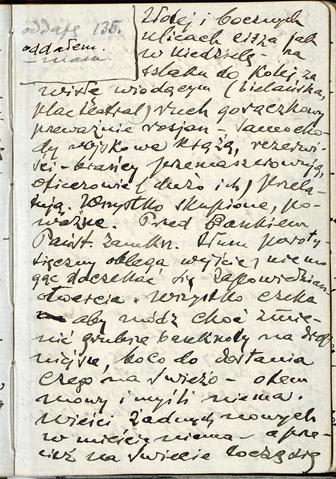 oddaję 135.
oddałem.
Wolej i bocznych
ulicach cisza jak
w Niedzielę na
szlaku do Kolej. za
Wisłę wiodącym (Bielańska,
plac teatral) ruch gorączkowy
przeważnie rosjan - samocho-
dy wojskowe krążą, rezerwi-
ści - brańcy przemaszerowują,
oficerowie (dużo ich) przela-
tują. Wszystko skupione, po-
ważne. Przed Bankiem
Państ. zamkn. tłum paroty-
sięczny oblega wyjście, nie mo-
gąc doczekać się zapowiedzian.
otwarcia. Wszystko czeka
aby módz choć zmie-
nić grubsze banknoty na drob-
niejsze, bo co do dostania
czego na świeżo - o tem
mowy i myśli niema.
Wieści żadnych nowych
w mieście niema - a prze-
cież na świecie toczą się